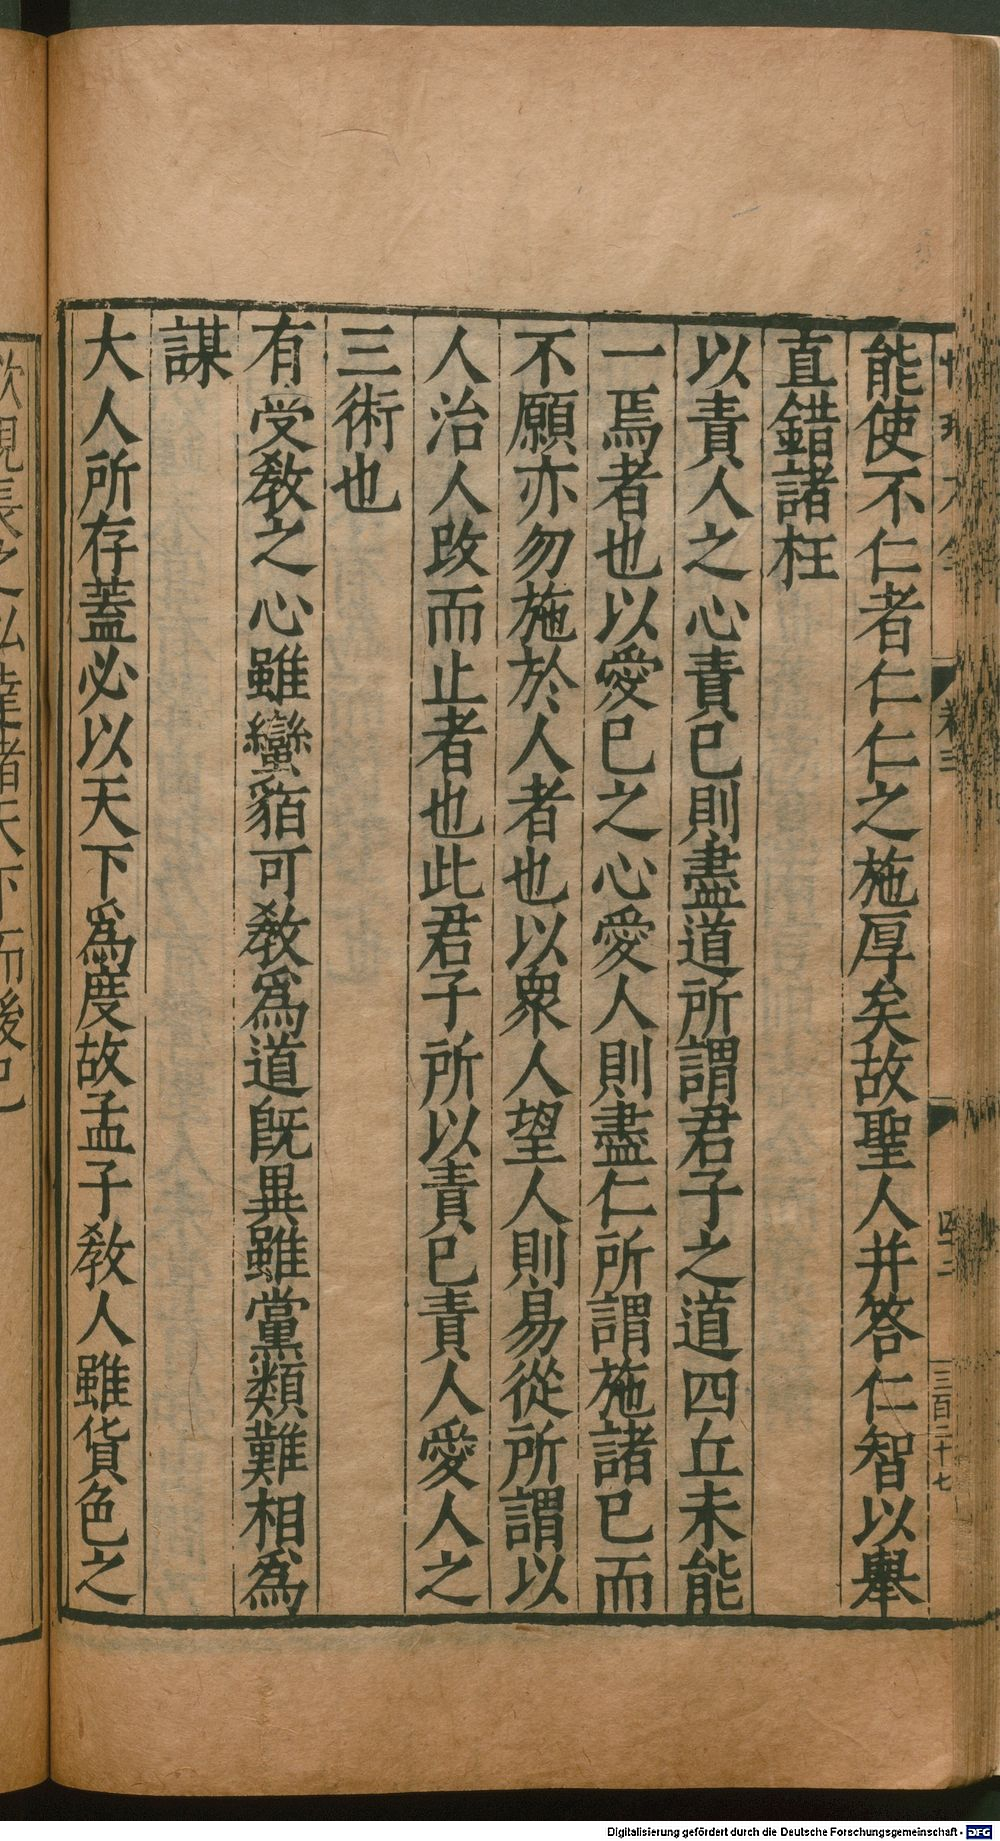 能使不仁者仁仁之施厚矣故聖人并答仁智以舉
直錯諸枉
以責人之心責已則盡道所謂君子之道四丘未能
一焉者也以愛已之心愛人則盡仁所謂施諸已而
不願亦勿施於人者也以衆人望人則易從所謂以
人治人改而止者也此君子所以責已責人愛人之
三術也
有受教之心雖蠻貊可教爲道旣異雖黨類難相爲
謀
大人所存蓋必以天下爲度故孟子教人雖貨色之
欲親長之私達諸天下而後已
卷三
四十二
三百二十七
Digitalisierung gefördert durch die Deutsche Forschungsgemeinschaft - DFG